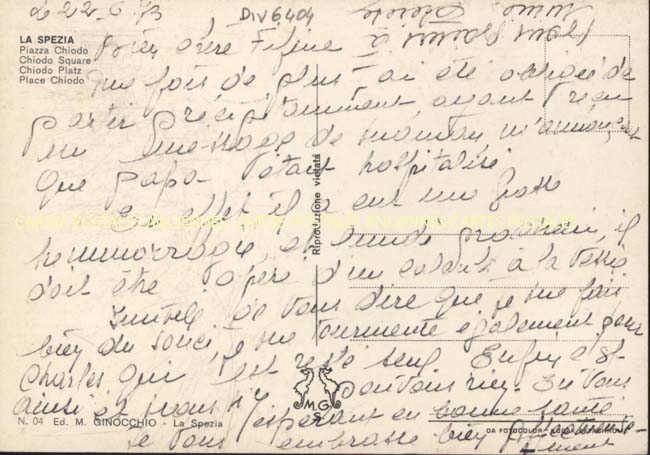 le 22.6.73
DIV6404
LA SPEZIA
Piazza Chiodo
Chiodo Square
Chiodo Platz
Place Chiodo
Bien chère Fifine
Une fois de plus j'ai été obligée de
partir précipitamment ayant reçu
un message de maman m'annonçant
que papa était hospitalisé
En effet il a eu une grosse
hemmorragie et lundi prochain il
doit être opéré d'un à la vessie
Inutile de vous dire que je me fais
bien du souci, je me tourmente également pour
Charles qui est resté seul Enfin c'est
ainsi et nous n'y pouvons rien. En vous
espérant en bonne santé
je vous embrasse bien affectueuse-
ment
Riproduzione vietata
MG
S
N. 04 Ed. M. GINOCCHIO - La Spezia